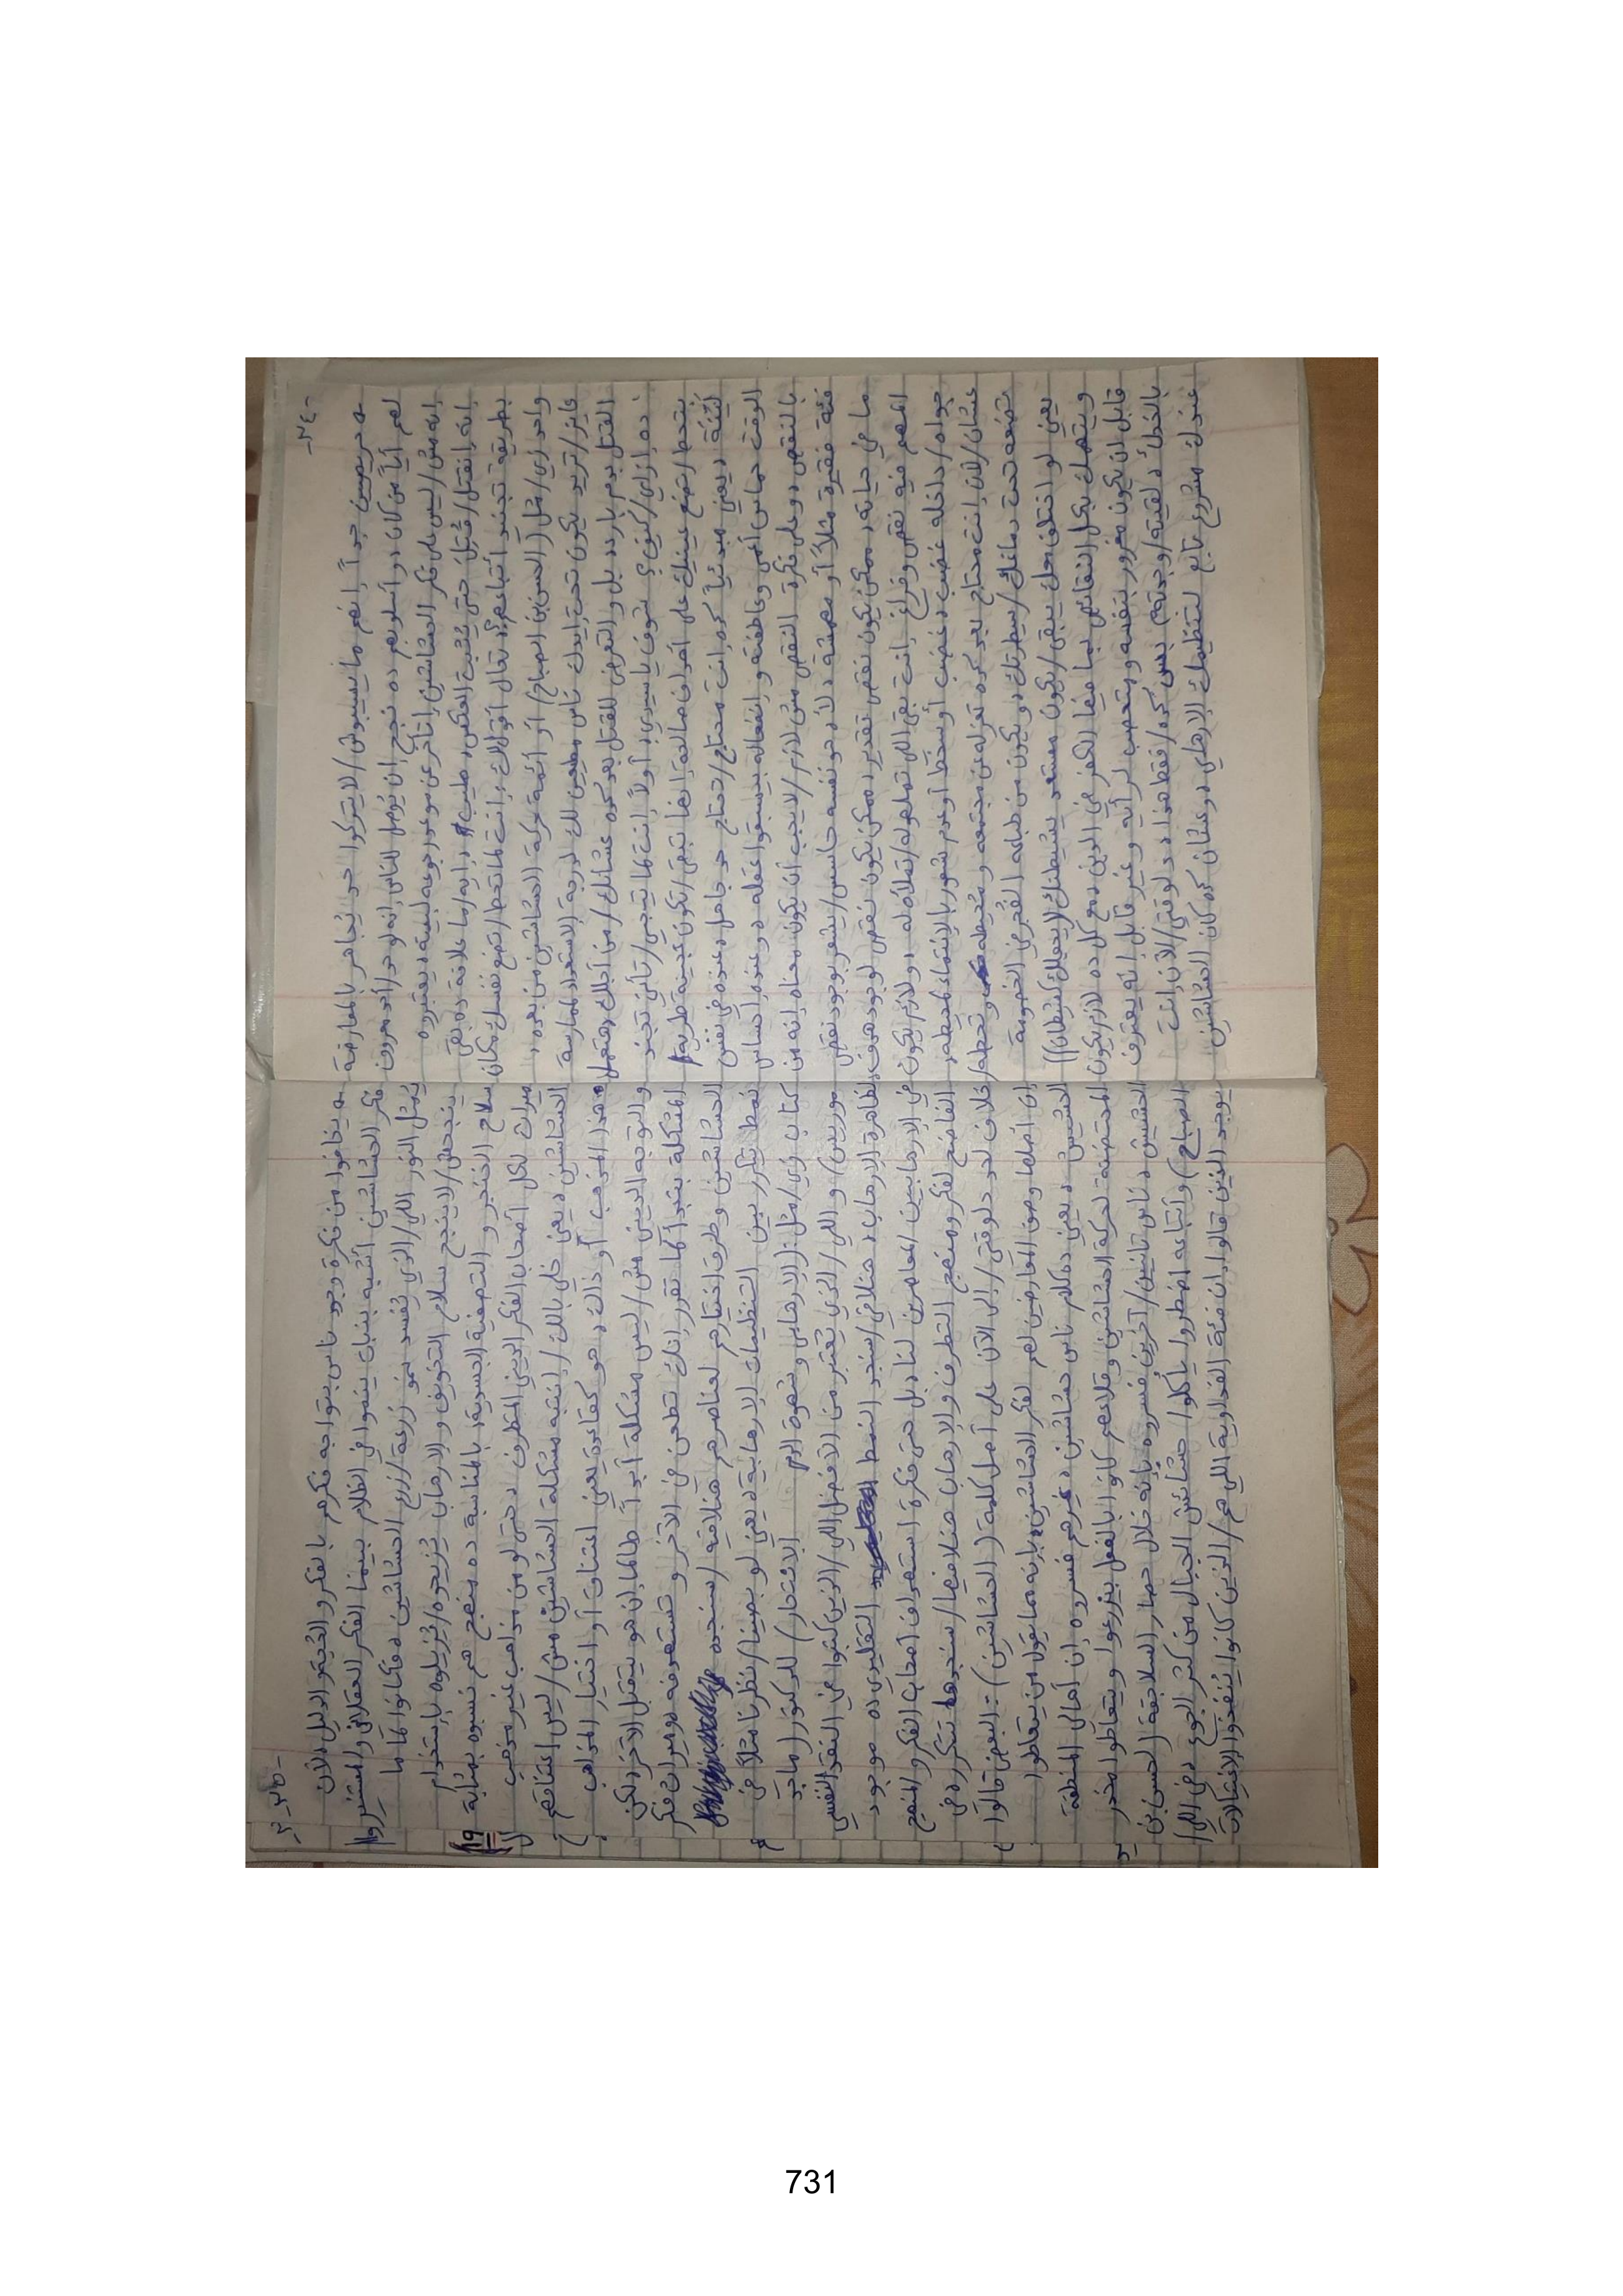 -٣٤-
حريصين جداً إنهم ما يسيبوش/لا يتركوا حد يُجاهر بالمعارضة
لهم أياً من كان، وأسلوبهم ده نجح إن يُوصل للناس إنه لو حد/أحد معروف
إنه مش/ليس على فكر الحشاشين إتأخر عن موعد رجوعه لبيته، يعتبروه
إنه إتقتل/قُتِل حتى يَثبت العكس، طيب، دا إيه/ما علاقة ده بقى
بطريقة تجنيد أتباعهم؟، تعال أقولك، إنت لما تحط/تضع نفسك مكان
واحد زي/مثل (الحسن بن الصباح) أو أئمة حركة الحشاشين من بعده،
عايز/تريد يكون تحت إيدك ناس مطيعين لك لدرجة الإستعداد لممارسة
القتل بدم بارد، بل والتعرض للقتل بعد كده عشانك/من أجلك، هتعمل
ده إزاي/كيف؟، شوف يا سيدي؛ أولاً إنت لما تيجي/تأتي تجند
بتحط/تضع عينيك على أهداف صالحة إنها تبقى/تكون عجينة طرية/
لَيِّنَة، يعني مبدئياً كده إنت محتاج/تحتاج حد جاهل، عنده في نفس
الوقت حماس أعمى وعاطفته وإنفعاله بيسبقوا عقله، وعنده إحساس
بالنقص، وعلى فكرة النقص مش لازم/لا يجب أن يكون معناه إنه من
فئة فقيرة مثلاً أو مهمشة، لأ، هو نفسه حاسس/يشعر بوجود نقص
ما في حياته، ممكن يكون نقص تقدير، ممكن يكون نقص لوجود هدف،
المهم فيه نقص وفراغ إنت بقى اللي تملهوله/تملأه له، ولازم يكون
جواه/داخله غضب، غضب أو سخط أو عدم شعور بالإنتماء لمحيطه،
عشان/لأن إنت محتاج بعد كده تعزله عن مجتمعه ومُحيطه وتحطه/
تضعه تحت دماغك/سيطرتك، ويكون من طباعه الفُجر في الخصومة
يعني لو اختلف معك يبقى/يكون مستعد يشيطنك(يجعلك كشيطان))
ويتهمك بكل النقائص بما فيها الكفر في الدين، مع كل ده لازم يكون
قابل لأن يكون مغرور بنفسه ومتعصب لرأيه وغير قابل إنه يعترف
بالخطأ، لقيته/وجدته؟، بس كده/فقط هذا، دلوقتي/الآن إنت
عندك مشروع تابع لتنظيمك الإرهابي، وعشان كده كان الحشاشين
-٣٥-
يخافوا من فكرة وجود ناس بتواجه فكرهم بالفكر والحُجة والدليل، لأن
فكر الحشاشين أشبه بنبات بينموا في الظلام بينما الفكر العقلاني والمستنير
يُمثل النور اللي/الذي يُفسد نمو زرعة/زرع الحشاشين، فكانوا لما ما
ينجحش/لا ينجح سلاح التخويف والإرهاب يُزيحوه/يُزيلوه بإستخدام
سلاح الخنجر والتصفية الجسدية، بالمناسبة ده منهج هم نسبوه بمثابة
ميراث لكل أصحاب الفكر الديني المتطرف، حتى لو من مذاهب غير مذهب
الحشاشين، يعني خلي بالك/إنتبه مشكلة الحشاشين مش/ليس إعتناقهم
لهذا المذهب أو ذاك، هو كقاعدة يعني إعتناق أو اختيار المذاهب
والتوجه الديني مش/ليس مشكلة أبداً طالما إن هو بيتقبل الآخر، لكن
المشكلة بتبدأ لما تقرر إنك تطعن في الآخر وتستهدفه، وميراث فكر
الحشاشين وطرق اختيارهم لعناصرهم هنلاقيه/سنجده
نمط بيتكرر بين التنظيمات الإرهابية، يعني لو بصينا/نظرنا مثلاً في
كتاب زي/مثل: (الإرهابي وشهوة الدم الإنتحار) للدكتور (ماجد
موريس) واللي/الذي يُعتبر من الأفضل اللي/الذين كتبوا في النقد النفسي
لظاهرة الإرهاب، هنلاقي/سنجد النمط التقليدي ده موجود
في الإرهابيين المعاصرين لينا، بل حتى فكرة إستهداف أصحاب الفكر والمنهج
الفاضح لفكر ومنهج التطرف والإرهاب هنلاقيها/سنجدها بتتكرر، في
خلاف لحد دلوقتي/إلى الآن على أصل كلمة (الحشاشين)؛ البعض قالوا
إن أصلها وصف المعارضين لهم لفكر الحشاشين بإنه مما يقول من يتعاطوا
الحشيش، يعني ده كلام ناس حشاشين، غيرهم فسروه إن أهالي المنطقة
المحتضنة لحركة الحشاشين وقلاعهم كانوا بالفعل بيزرعوا وبيتعاطوا مخدر
الحشيش، ناس تانيين/آخرين فسروه بإنه خلال حصار السلاجقة (الحسن بن
الصباح) وأتباعه اضطروا يأكلوا حشائش الجبال من كثر الجوع، في اللي/
يوجد الذين قالوا، إن فئة الفداوية اللي هم/الذين كانوا يُنفذوا الإغتيالات
731